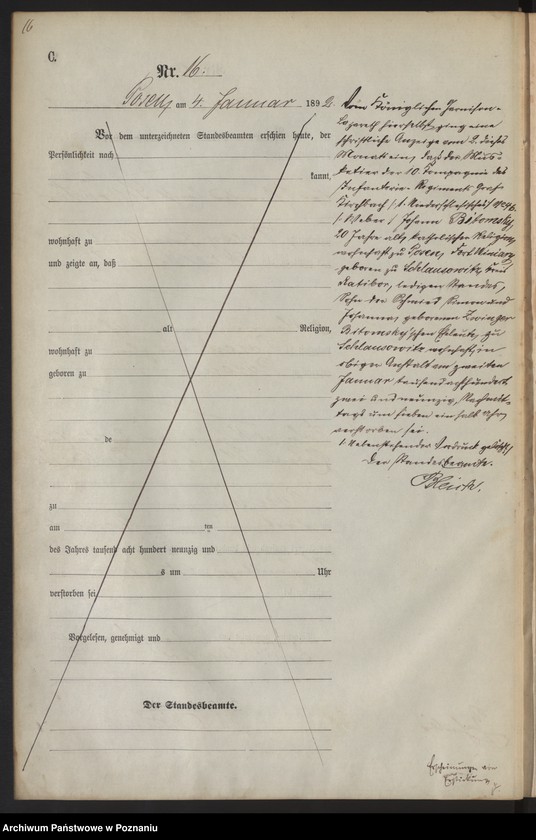 16
C.
Nr. 16.
Posen, am 4. Januar 1892.
Vor dem unterzeichneten Standesbeamten erschien heute, der
Persönlichkeit nach
kannt,
wohnhaft zu
und zeigte an, daß
alt Religion,
wohnhaft zu
geboren zu
de
zu
am ten
des Jahres tausend acht hundert neunzig und
s um Uhr
verstorben sei
Vorgelesen, genehmigt und
Der Standesbeamte.
Vom Königlichen Garnison-
Lazareth hierselbst ging eine
schriftliche Anzeige vom 2. dieses
Monats ein, daß der Mus-
ketier der 10. Compagnie des
Infanterie Regiments Graf
Kirchbach (1. Niederschlesisches) № 46.
Johann Bitomsky,
20 Jahre alt, katholischer Religion,
wohnhaft zu Posen, Fort Winiary
geboren zu Schlausowitz, Kreis
Ratibor, ledigen Standes,
Sohn der Schmied Simon und
Johanna, geborenen Zwinger
Bitomsky'schen Eheleute, zu
Schlausowitz wohnhaft, in
obiger Anstalt am zweiten
Januar tausend achthundert
zwei und neunzig, Nachmit-
tags um sieben ein halb Uhr
verstorben sei.
Nebenstehender Vordruck gelöscht
Der Standesbeamte.
Archiwum Państwowe w Poznaniu